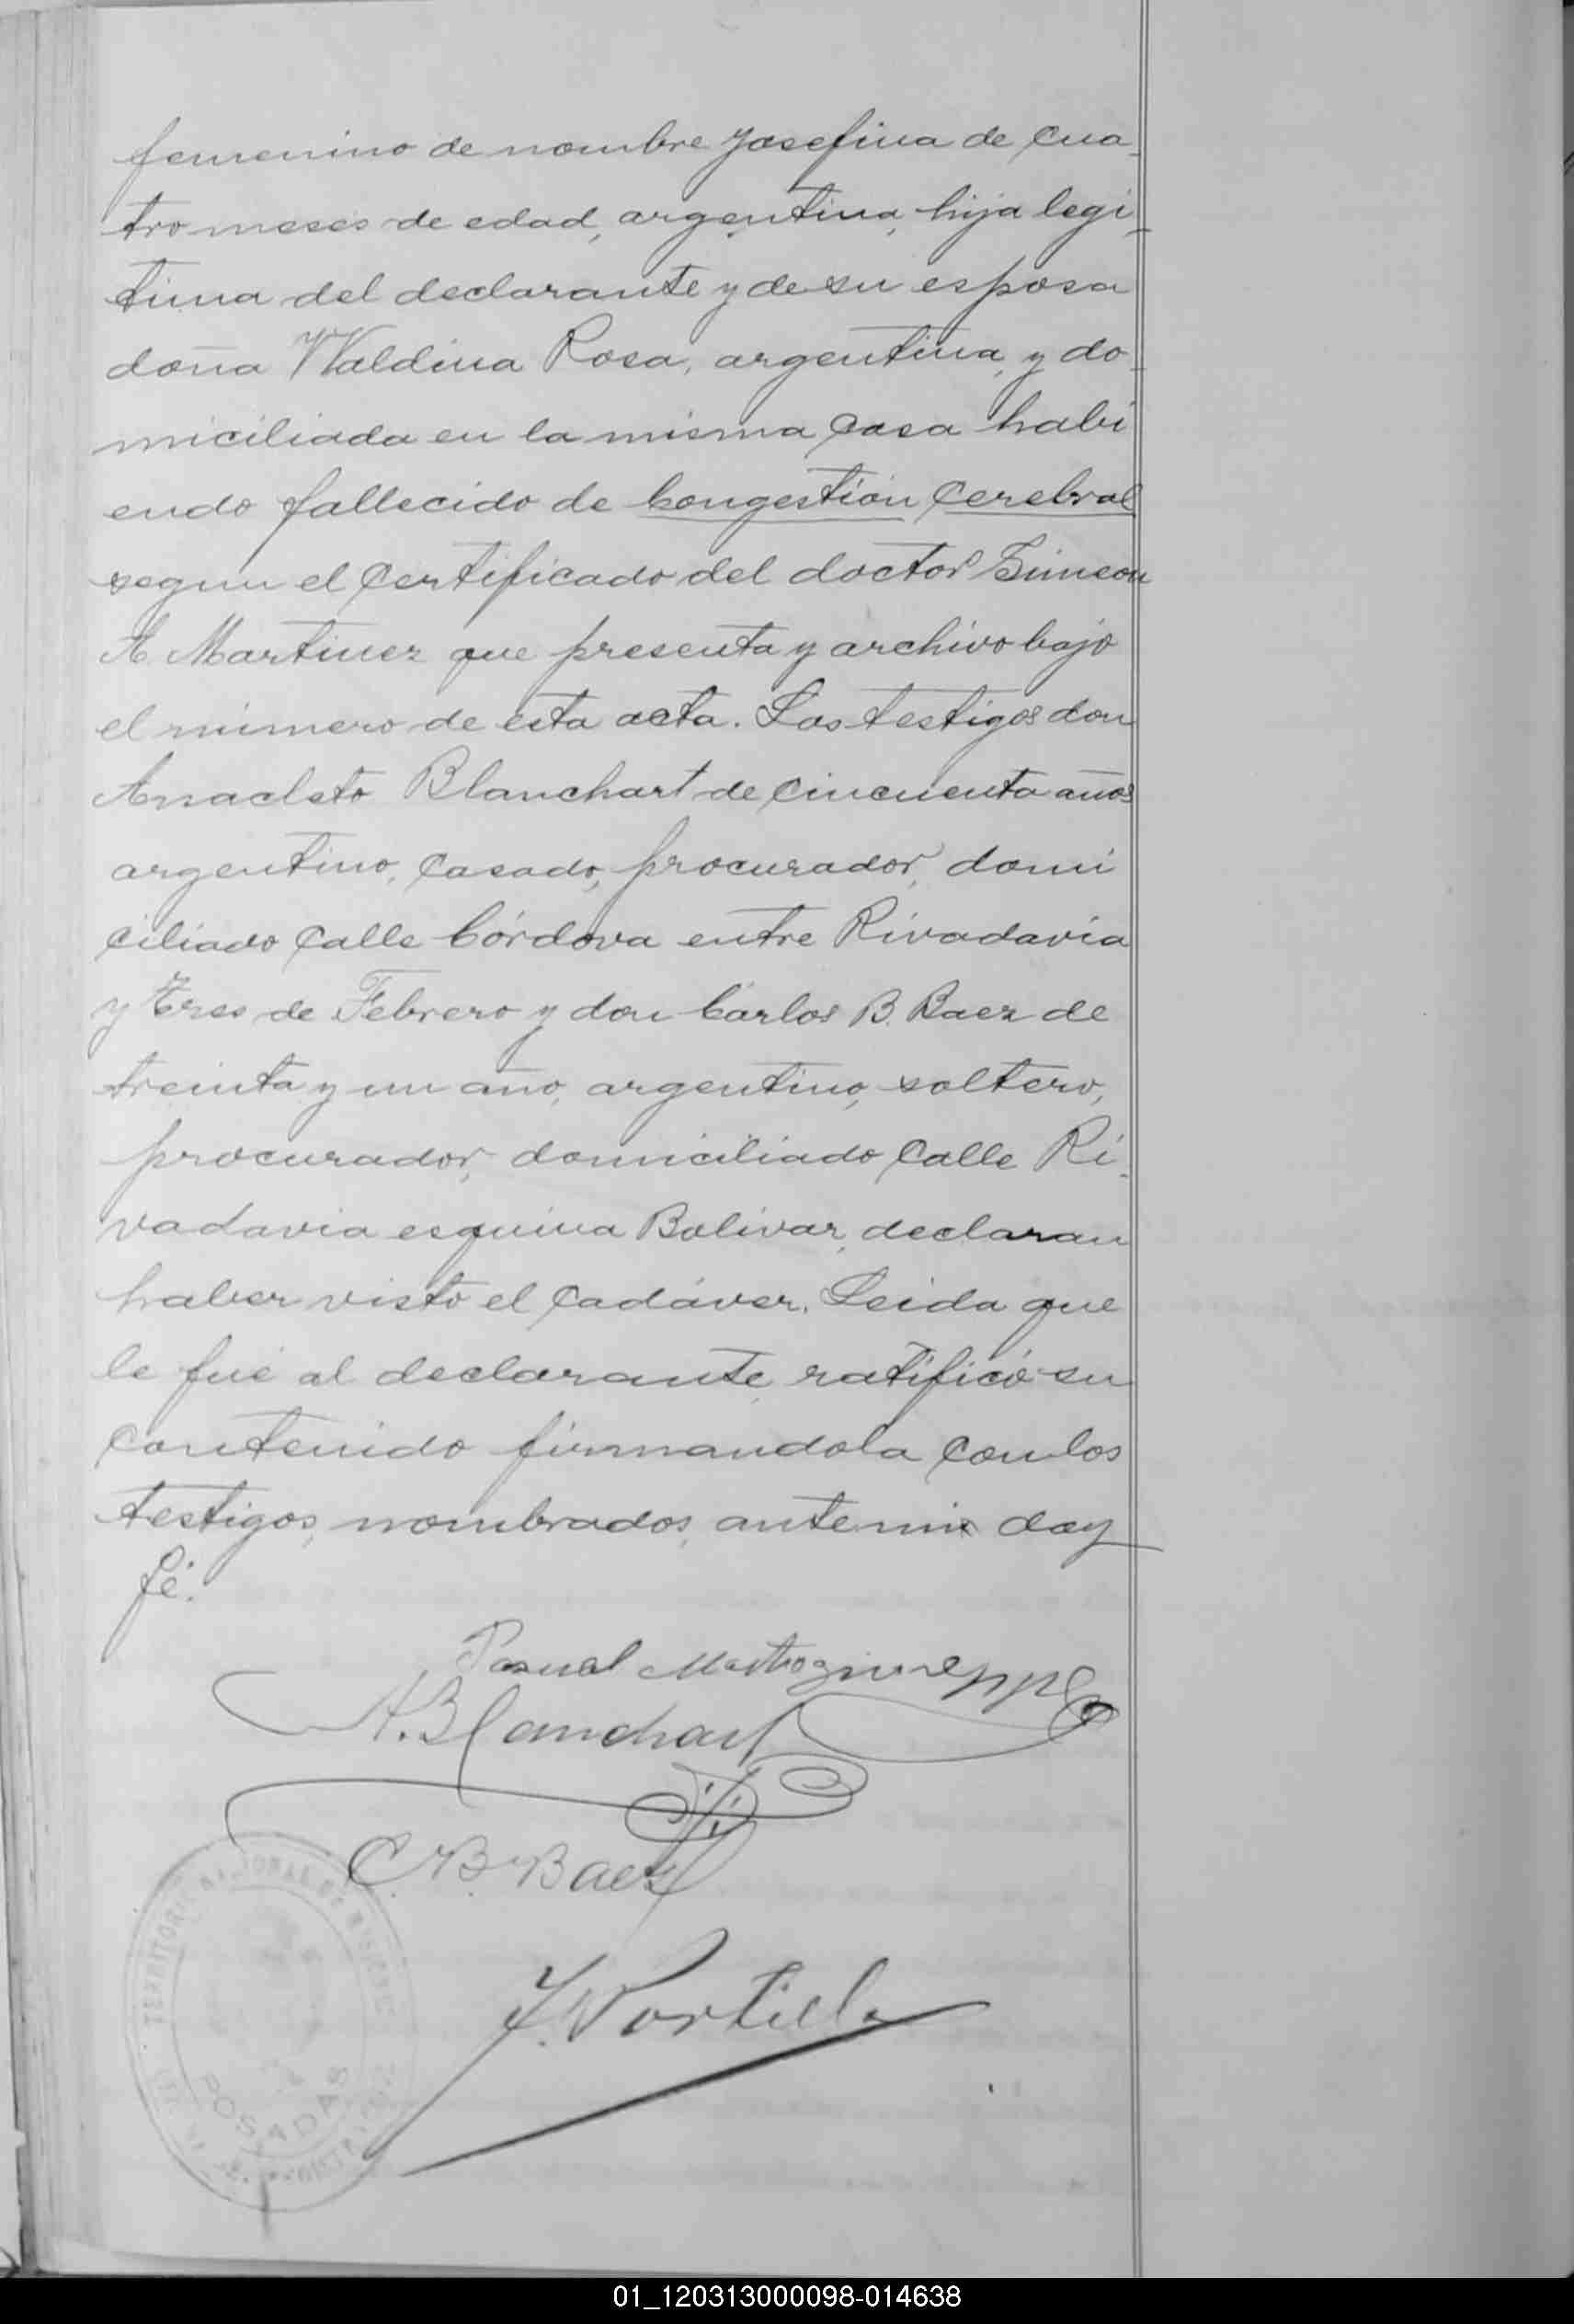 femenino de nombre Josefina de cua-
tro meses de edad, argentina, hija legi-
tima del declarante y de su esposa
doña Waldina Rosa, argentina, y do-
miciliada en la misma casa habi
endo fallecido de Congestión Cerebral
segun el certificado del doctor Simeon
A Martinez que presenta y archivo bajo
el número de esta acta. Los testigos don
Anacleto Blanchart de cincuenta años
argentino, casado, procurador, domi
ciliado calle Córdova entre Rivadavia
y Tres de Febrero y don Cárlos B. Baez de
treinta y un año, argentino, soltero,
procurador, domiciliado calle Ri-
vadavia esquina Bolivar, declaran
haber visto el cadáver. Leida que
le fué al declarante, ratificó su
contenido firmandola con los
testigos, nombrados, ante mi doy
fé.
Pasual Mastrogiuseppe
A. Blanchart
C. B. Baez
J. Portillo
TERRITORIO NACIONAL DE MISIONES
POSADAS
01_120313000098-014638